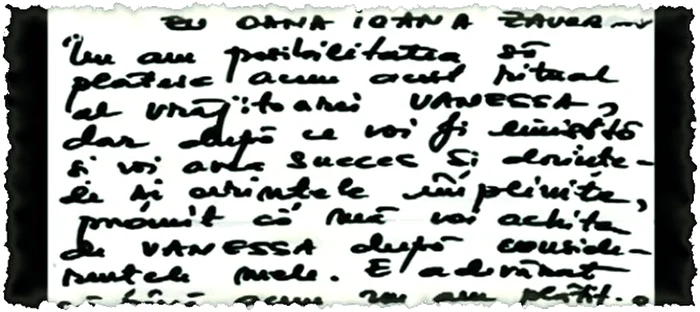 EU OANA IOANA ZAVOR
Nu am posibilitatea să
plătesc acum acest ritual
al vrăjitoarei VANESSA,
dar după ce voi fi liniștită
și voi avea succes și dorințe-
le și arintele împlinite,
promit că mă voi achita
de VANESSA după conside-
rentele mele. E adevărat
că până acum nu am plătit.